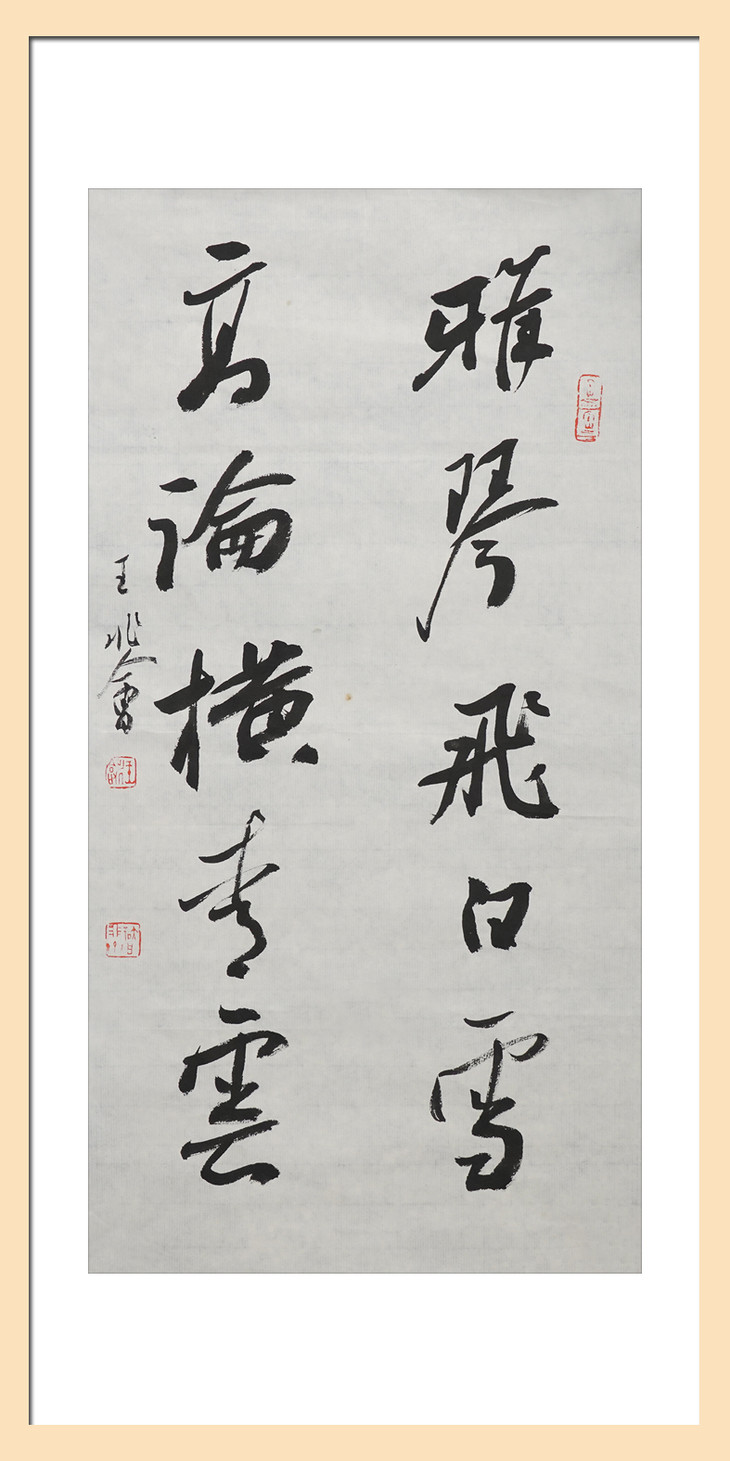 雅琴飛白雪
高論橫青雲
王兆會